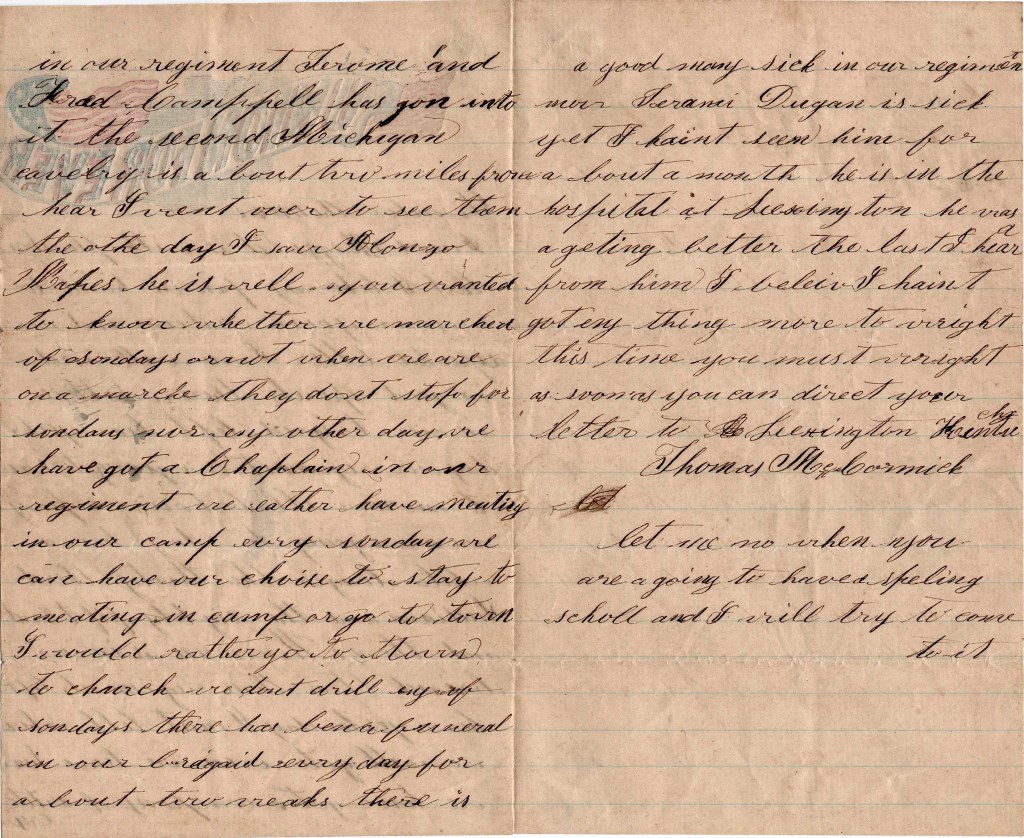 in our regiment Jerome and
Fred Camppell has gon into
it the second Michigan
cavelry is a bout two miles from
hear I went over to see them
the othe day I saw Alonzo
Mapes he is well you wanted
to know whether we marched
of sondays or not when we are
on a marche they dont stop for
sondays nor eny other day we
have got a Chaplain in our
regiment we eather have meating
in our camp evry sonday are
can have our choise to stay to
meating in camp or go to town
I would rather go to town
to church we dont drill eny of
sondays there has ben a funeral
in our bridgaid evry day for
a bout two weaks there is
a good many sick in our regiment
now Jerami Dugan is sick
yet I haint seen him for
a bout a month he is in the
hospital at Lexington he was
a geting better the last I hear
from him I beleiv I haint
got eny thing more to wright
this time you must wright
as soon as you can direct your
letter to Lexington Kentucky
Thomas McCormick
let me no when you
are a going to have a speling
scholl and I will try to come
to it